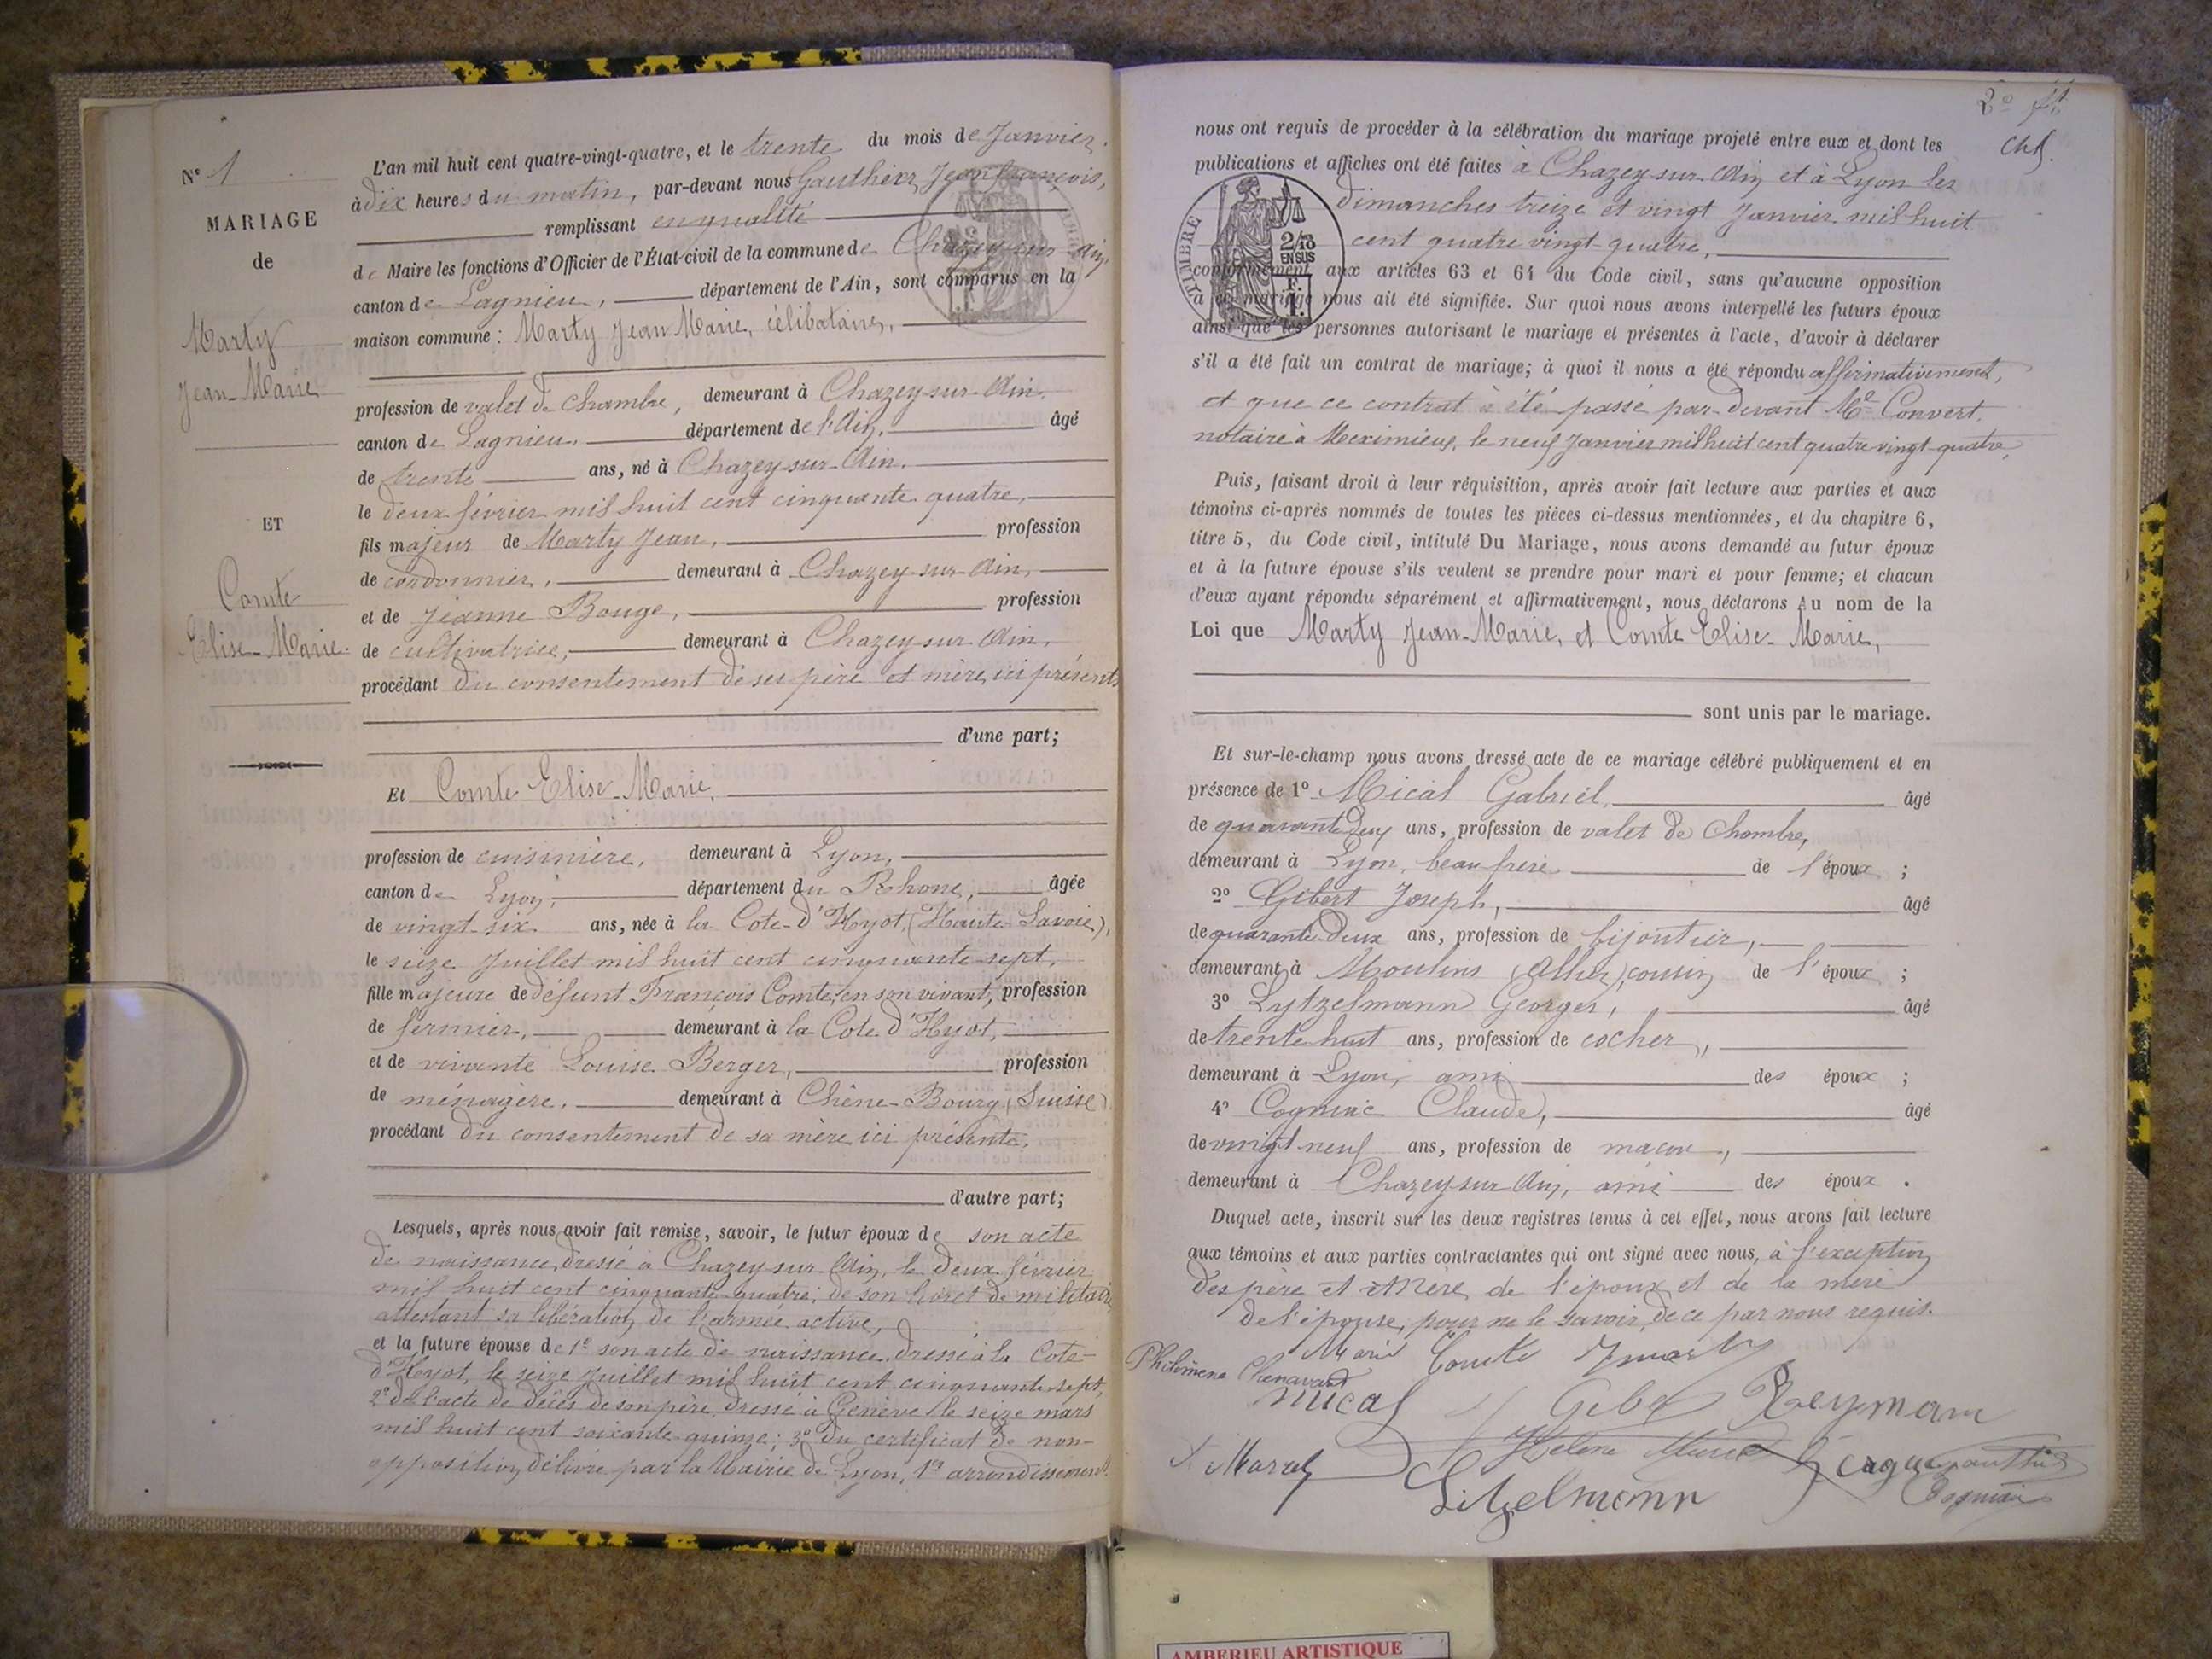 N° 1
MARIAGE
de
Marty
Jean-Marie
ET
Comte
Elise-Marie
L'an mil huit cent quatre-vingt-quatre, et le trente du mois de Janvier.
à dix heures du matin, par-devant nous Gauthier, Jean François,
remplissant en qualité
de Maire les fonctions d'Officier de l'État civil de la commune de Chazey-sur-Ain,
canton de Lagnieu, département de l'Ain, sont comparus en la
maison commune : Marty Jean Marie, célibataire,
profession de valet de chambre, demeurant à Chazey-sur-Ain.
canton de Lagnieu, département de l'Ain, âgé
de trente ans, né à Chazey-sur-Ain.
le deux février mil huit cent cinquante quatre,
fils majeur de Marty Jean, profession
de cordonnier, demeurant à Chazey-sur-Ain,
et de Jeanne Bouge, profession
de cultivatrice, demeurant à Chazey-sur-Ain,
procédant du consentement de ses père et mère, ici présents
d'une part;
Et Comte Elise-Marie,
profession de cuisinière, demeurant à Lyon,
canton de Lyon, département du Rhone, âgée
de vingt-six ans, née à la Cote-d'Hyot, (Haute-Savoie),
le seize Juillet mil huit cent cinquante-sept,
fille majeure de défunt François Comte, en son vivant, profession
de fermier, demeurant à la Cote d'Hyot,
et de vivante Louise Berger, profession
de ménagère, demeurant à Chêne-Bourg (Suisse)
procédant du consentement de sa mère ici présente,
d'autre part;
Lesquels, après nous avoir fait remise, savoir, le futur époux de son acte
de naissance, dressé à Chazey-sur-Ain, le deux février
mil huit cent cinquante-quatre, de son livret de militaire
attestant sa libération de l'armée active,
et la future épouse de 1° son acte de naissance dressé à la Cote-
d'Hyot, le seize Juillet mil huit cent cinquante-sept,
2° de l'acte de décès de son père, dressé à Genève le seize mars
mil huit cent soixante-quinze; 3° du certificat de non-
opposition délivré par la Mairie de Lyon, 1er arrondissement.
nous ont requis de procéder à la célébration du mariage projeté entre eux et dont les
publications et affiches ont été faites à Chazey-sur-Ain et à Lyon les
dimanches treize et vingt Janvier mil huit
cent quatre vingt-quatre,
TIMBRE
2/10
EN SUS
conformément aux articles 63 et 64 du Code civil, sans qu'aucune opposition
à ce mariage nous ait été signifiée. Sur quoi nous avons interpellé les futurs époux
ainsi que les personnes autorisant le mariage et présentes à l'acte, d'avoir à déclarer
s'il a été fait un contrat de mariage; à quoi il nous a été répondu affirmativement,
et que ce contrat a été passé par-devant Me Convert,
notaire à Meximieux, le neuf Janvier mil huit cent quatre vingt-quatre,
Puis, faisant droit à leur réquisition, après avoir fait lecture aux parties et aux
témoins ci-après nommés de toutes les pièces ci-dessus mentionnées, et du chapitre 6,
titre 5, du Code civil, intitulé Du Mariage, nous avons demandé au futur époux
et à la future épouse s'ils veulent se prendre pour mari et pour femme; et chacun
d'eux ayant répondu séparément et affirmativement, nous déclarons Au nom de la
Loi que Marty Jean-Marie, et Comte Elise-Marie,
sont unis par le mariage.
Et sur-le-champ nous avons dressé acte de ce mariage célébré publiquement et en
présence de 1° Mical Gabriel, âgé
de quarante deux ans, profession de valet de Chambre,
demeurant à Lyon, beau frère de l'époux ;
2° Gibert Joseph, âgé
de quarante-deux ans, profession de bijoutier,
demeurant à Moulins (Allier), cousin de l'époux ;
3° Lytzelmann Georges, âgé
de trente huit ans, profession de cocher,
demeurant à Lyon, ami des époux ;
4° Cogniac Claude, âgé
de vingt neuf ans, profession de maçon,
demeurant à Chazey sur Ain, ami des époux .
Duquel acte, inscrit sur les deux registres tenus à cet effet, nous avons fait lecture
aux témoins et aux parties contractantes qui ont signé avec nous, à l'exception
des père et mère de l'époux et de la mère
de l'épouse, pour ne le savoir, de ce par nous requis.
Marie Comte J marty
Philomène Chenavard
Mical Gibert Reymann
Litzelmann
AMBERIEU ARTISTIQUE